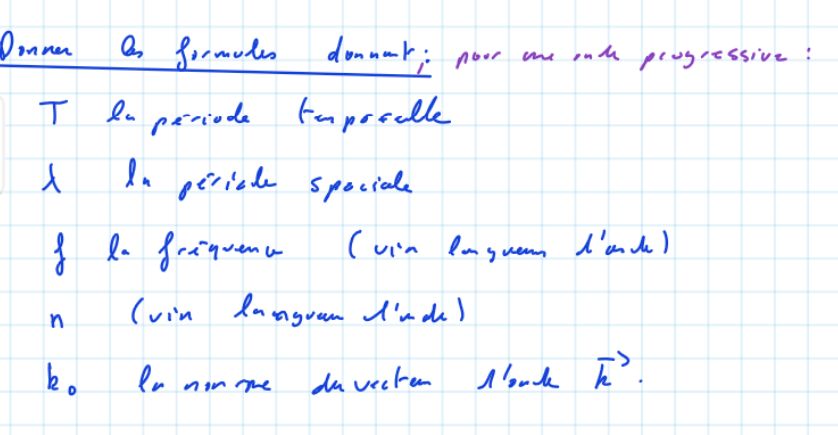 Donner les formules donnant, pour une onde progressive :
T la période temporelle
λ la période spaciale
f la fréquence (via longueur d'onde)
n (via longueur d'onde)
k₀ la norme du vecteur d'onde k⃗.